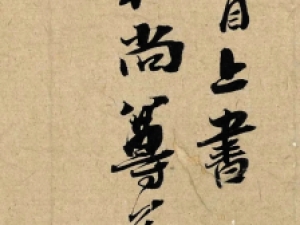 首上書
尚尊